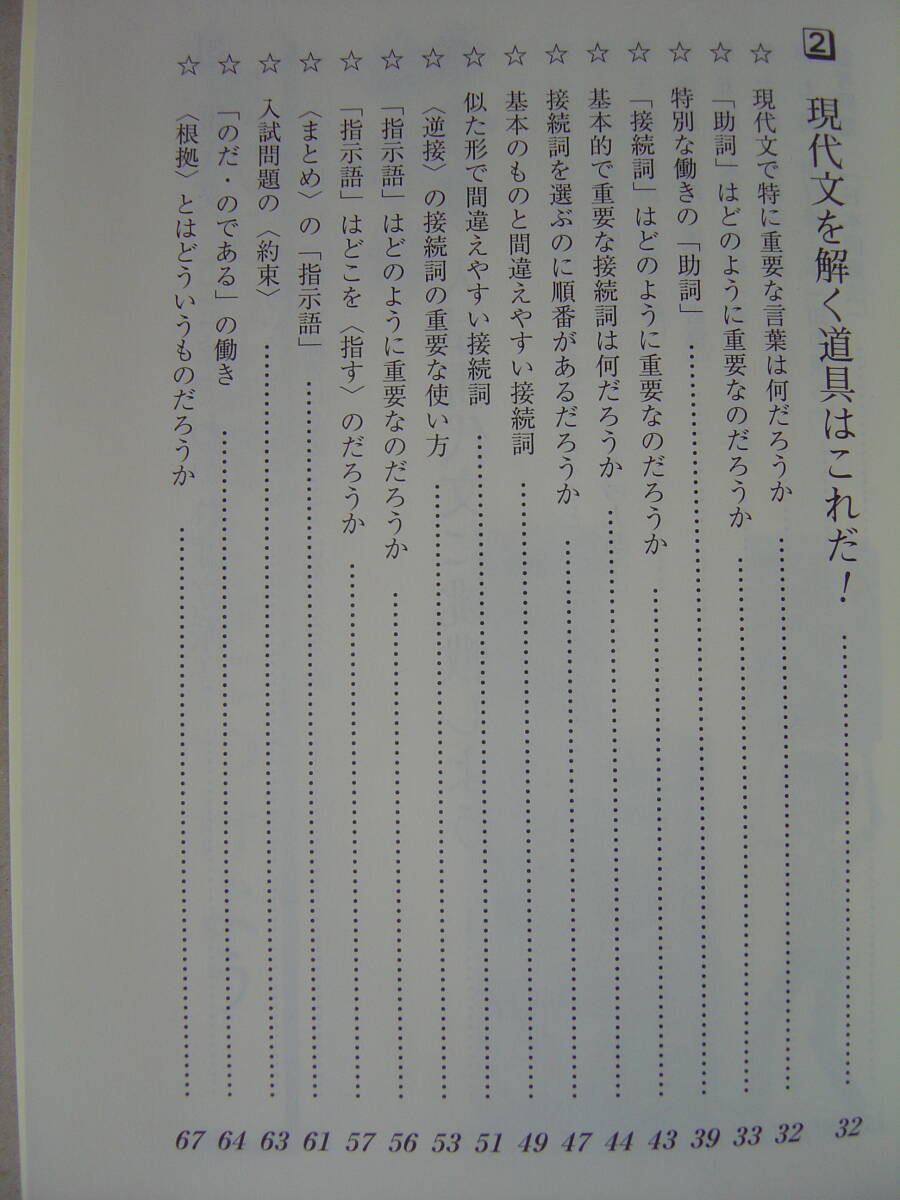 2 現代文を解く道具はこれだ！ …… 32
☆ 現代文で特に重要な言葉は何だろうか …… 32
☆ 「助詞」はどのように重要なのだろうか …… 33
☆ 特別な働きの「助詞」 …… 39
☆ 「接続詞」はどのように重要なのだろうか …… 43
☆ 基本的で重要な接続詞は何だろうか …… 44
☆ 接続詞を選ぶのに順番があるだろうか …… 47
☆ 基本のものと間違えやすい接続詞 …… 49
☆ 似た形で間違えやすい接続詞 …… 51
☆ 〈逆接〉の接続詞の重要な使い方 …… 53
☆ 「指示語」はどのように重要なのだろうか …… 56
☆ 「指示語」はどこを〈指す〉のだろうか …… 57
☆ 〈まとめ〉の「指示語」 …… 61
☆ 入試問題の〈約束〉 …… 63
☆ 「のだ・のである」の働き …… 64
☆ 〈根拠〉とはどういうものだろうか …… 67